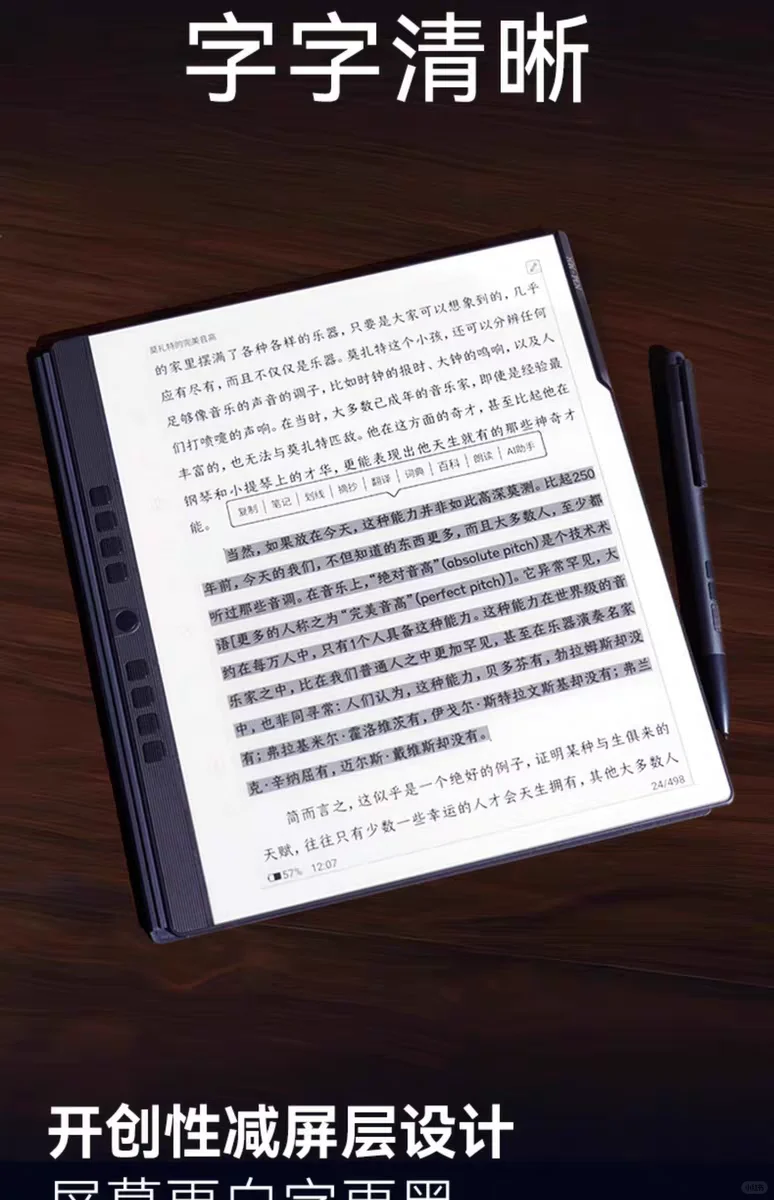 字字清晰
莫扎特的完美音高
的家里摆满了各种各样的乐器，只要是大家可以想象到的，几乎
应有尽有，而且不仅仅是乐器。莫扎特这个小孩，还可以分辨任何
足够像音乐的声音的调子，比如时钟的报时、大钟的鸣响，以及人
们打喷嚏的声响。在当时，大多数已成年的音乐家，即使是经验最
丰富的，也无法与莫扎特匹敌。他在这方面的奇才，甚至比起他在
钢琴和小提琴上的才华，更能表现出他天生就有的那些神奇才
能。
复制 | 笔记 | 划线 | 摘抄 | 翻译 | 词典 | 百科 | 朗读 | AI助手
当然，如果放在今天，这种能力并非如此高深莫测。比起250
年前，今天的我们，不但知道的东西更多，而且大多数人，至少都
听过那些音调。在音乐上，“绝对音高”（absolute pitch）是个技术术
语[更多的人称之为“完美音高”（perfect pitch）]。它异常罕见，大
约在每万人中，只有1个人具备这种能力。这种能力在世界级的音
乐家之中，比在我们普通人之中更加罕见，甚至在乐器演奏名家
中，也非同寻常：人们认为，这种能力，贝多芬有，勃拉姆斯却没
有；弗拉基米尔·霍洛维茨有，伊戈尔·斯特拉文斯基却没有；弗兰
克·辛纳屈有，迈尔斯·戴维斯却没有。
简而言之，这似乎是一个绝好的例子，证明某种与生俱来的
天赋，往往只有少数一些幸运的人才会天生拥有，其他大多数人
57% 12:07
24/498
开创性减屏层设计
屏幕更白字更黑